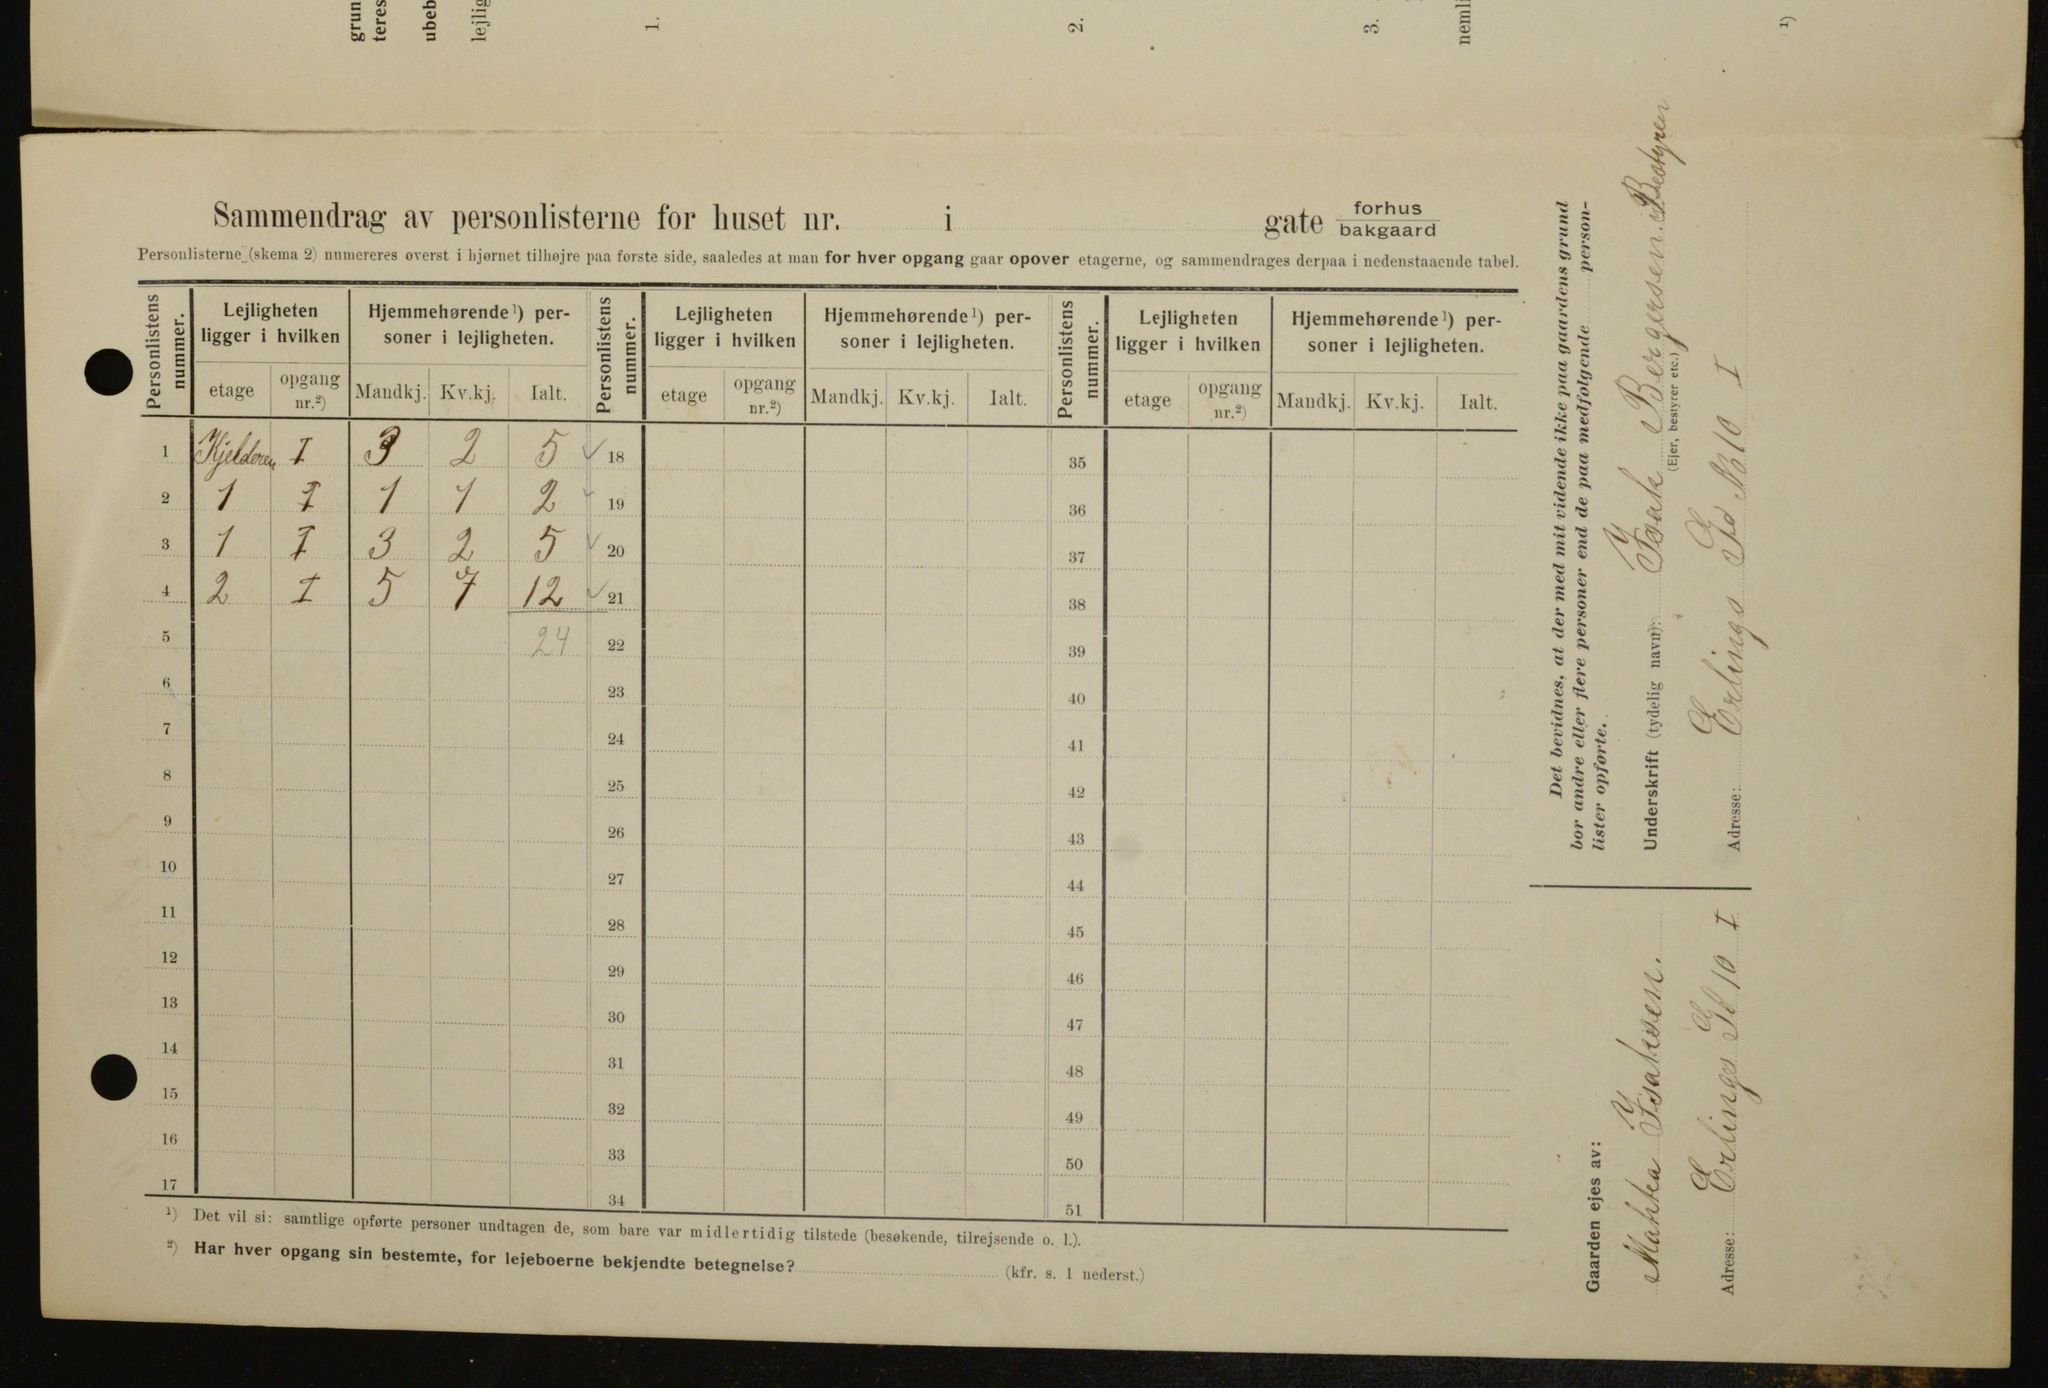 grun
teres
ubeb
lejlig
1.
2.
3.
nemli
1)
Sammendrag av personlisterne for huset nr. i gate forhus
bakgaard
Personlisterne (skema 2) numereres øverst i hjørnet tilhøjre paa første side, saaledes at man for hver opgang gaar opover etagerne, og sammendrages derpaa i nedenstaaende tabel.
Personlistens nummer. Lejligheten ligger i hvilken Hjemmehørende¹) personer i lejligheten. Personlistens nummer. Lejligheten ligger i hvilken Hjemmehørende¹) personer i lejligheten. Personlistens nummer. Lejligheten ligger i hvilken Hjemmehørende¹) personer i lejligheten.
etage opgang nr.²) Mandkj. Kv.kj. Ialt. etage opgang nr.²) Mandkj. Kv.kj. Ialt. etage opgang nr.²) Mandkj. Kv.kj. Ialt.
1 Kjelderen I 3 2 5 18 35
2 1 I 1 1 2 19 36
3 1 I 3 2 5 20 37
4 2 I 5 7 12 21 38
5 24 22 39
6 23 40
7 24 41
8 25 42
9 26 43
10 27 44
11 28 45
12 29 46
13 30 47
14 31 48
15 32 49
16 33 50
17 34 51
¹) Det vil si: samtlige opførte personer undtagen de, som bare var midlertidig tilstede (besøkende, tilrejsende o. l.).
²) Har hver opgang sin bestemte, for lejeboerne bekjendte betegnelse? (kfr. s. 1 nederst.)
Det bevidnes, at der med mit vidende ikke paa gaardens grund
bor andre eller flere personer end de paa medfølgende person-
lister opførte.
Underskrift (tydelig navn): Isak Bergersen. Bestyren
(Ejer, bestyrer etc.)
Adresse: Erlings Gd No 10 I
Gaarden ejes av:
Makka Isaksen.
Adresse: Erlings Gd 10 I